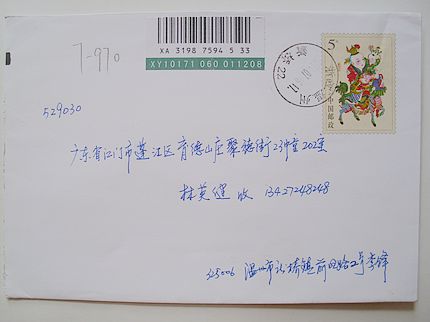 XA 3198 7594 5 33
XY10171 060 011208
7-970
5元
中国邮政
529030
广东省江门市蓬江区育德山庄聚德街23冲重202室
林英健 收 13427248248
325006 温州市 桥镇前 路2号 李锋